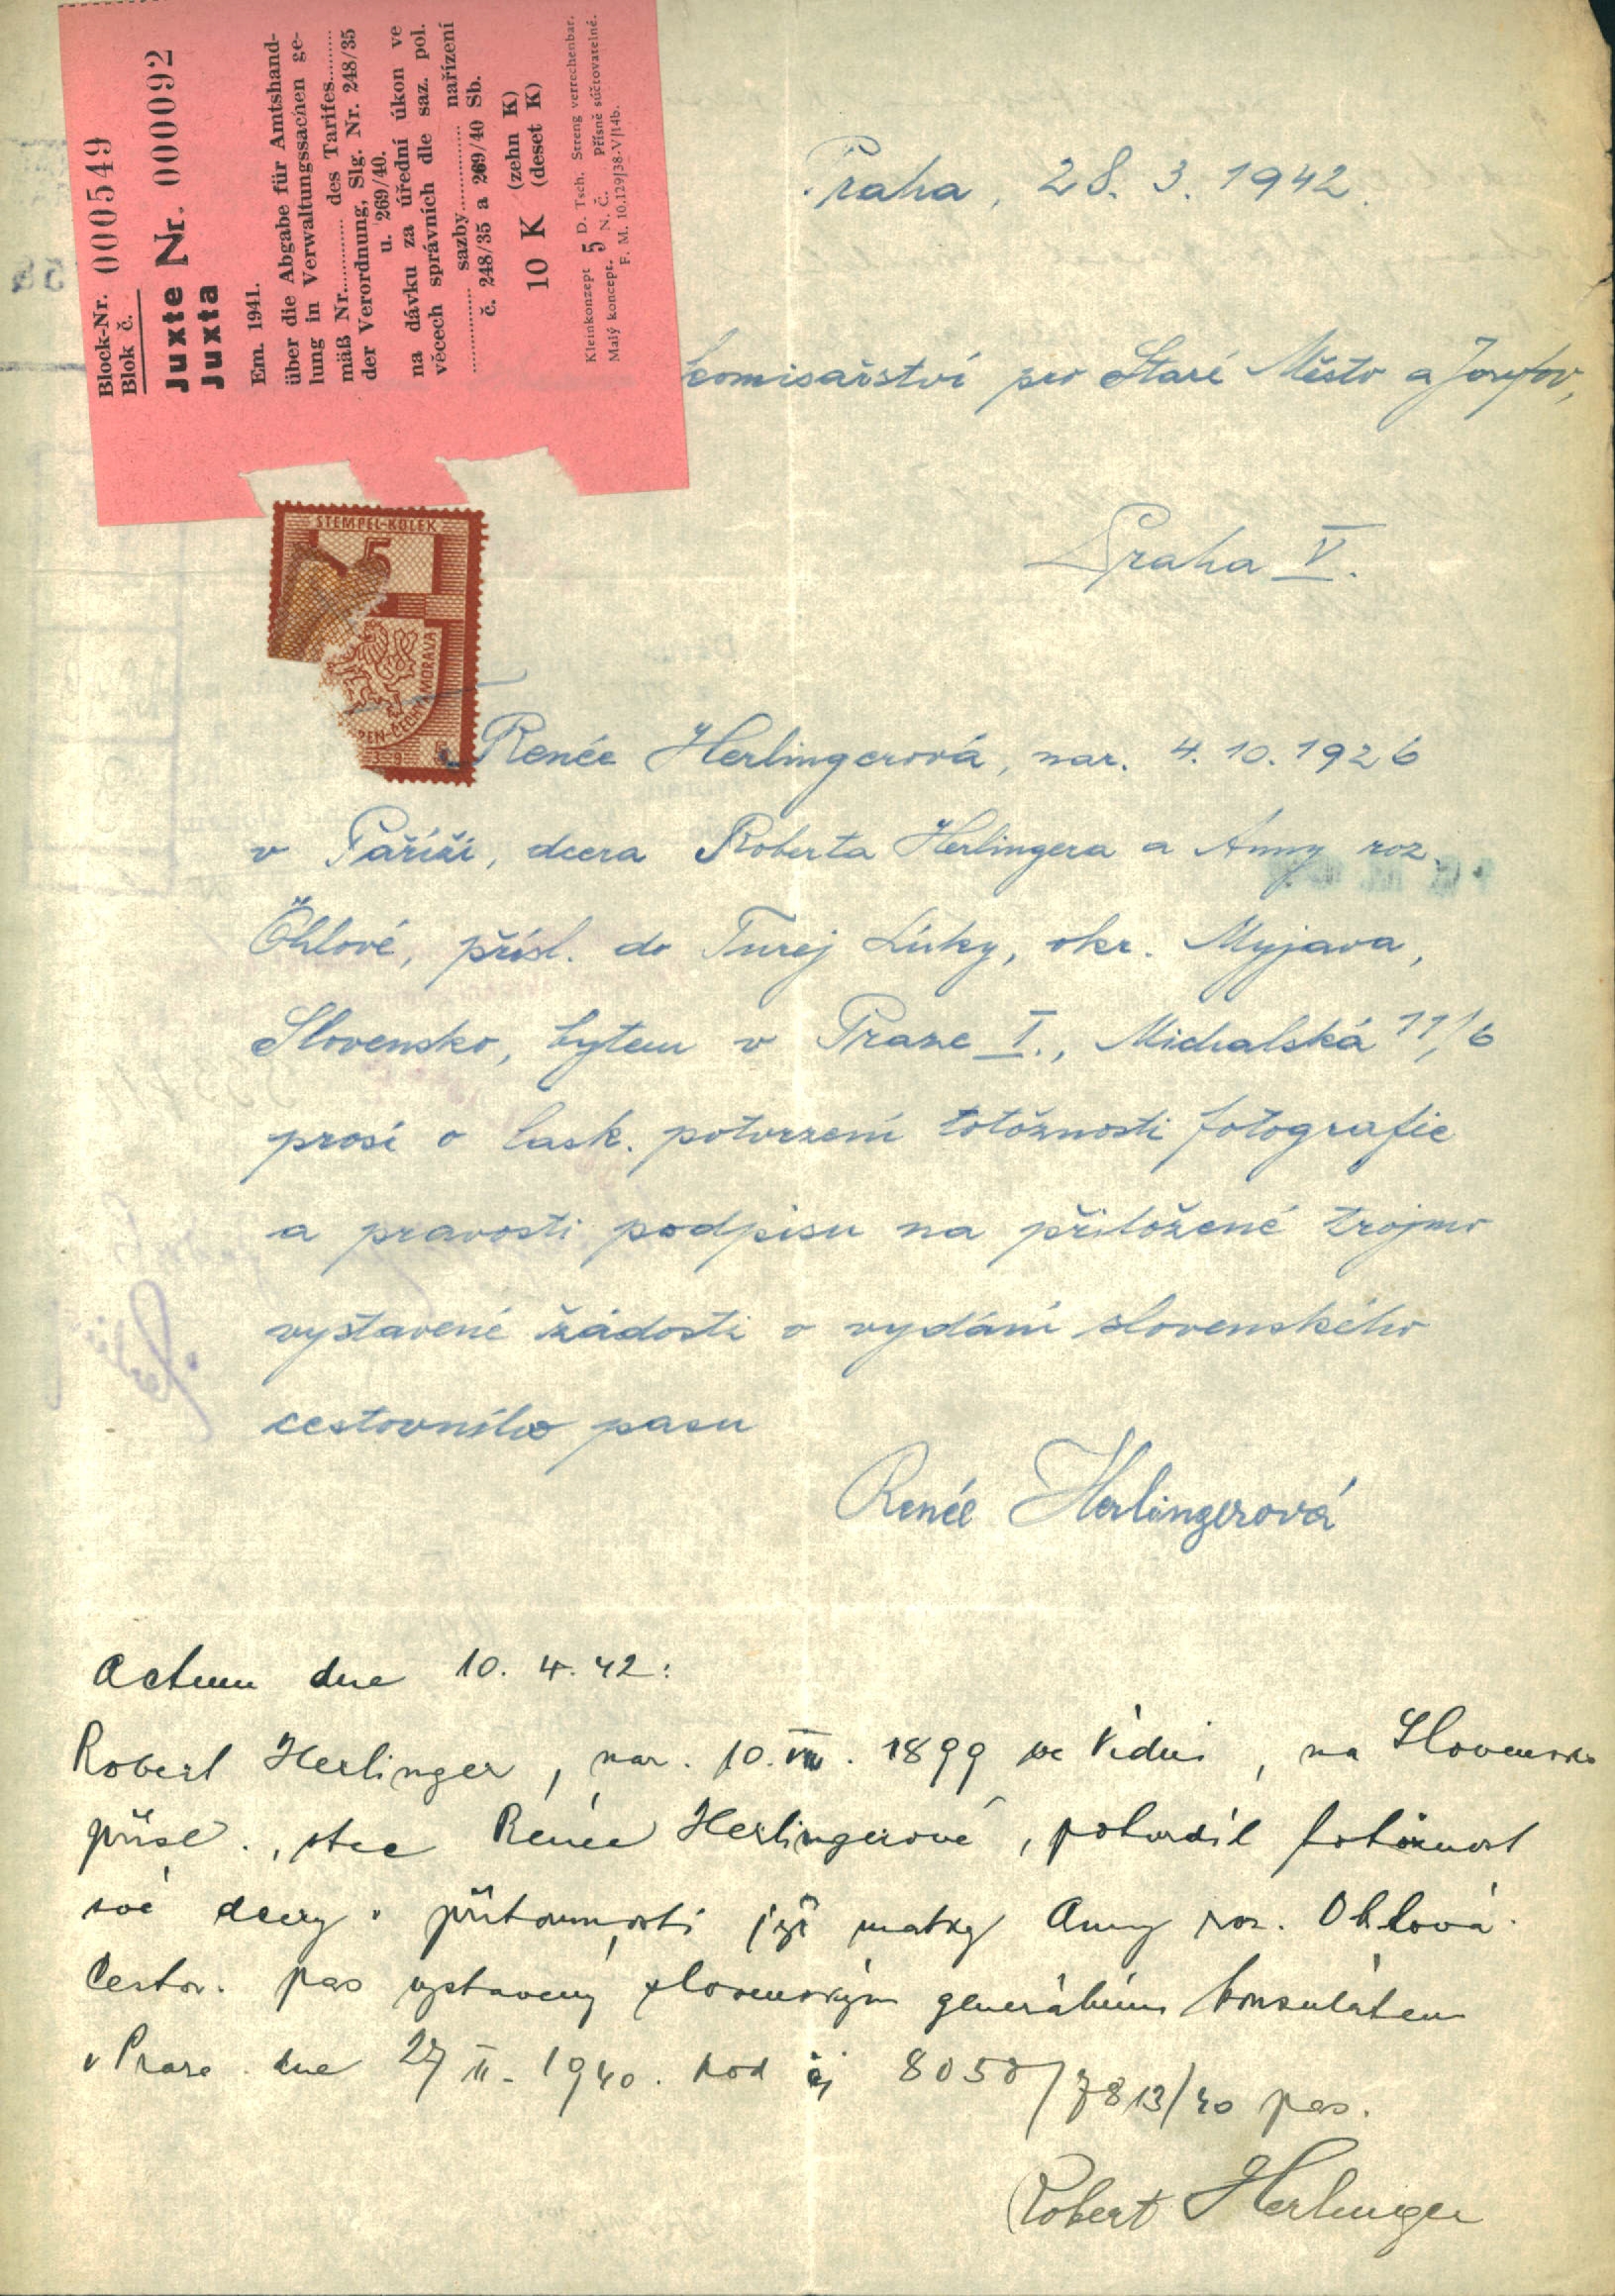 Block-Nr. 000549
Blok č.
Juxte Nr. 000092
Juxta
Em. 1941.
über die Abgabe für Amtshand-
lung in Verwaltungssachen ge-
mäß Nr............ des Tarifes.........
der Verordnung, Slg. Nr. 248/35
u. 269/40.
na dávku za úřední úkon ve
věcech správních dle saz. pol.
............ sazby............ nařízení
č. 248/35 a 269/40 Sb.
10 K (zehn K)
(deset K)
Kleinkonzept 5 D. Tsch. Streng verrechenbar.
Malý koncept. 5 N. Č. Přísně súčtovatelné.
F. M. 10.129/38-V/14b.
Praha, 28. 3. 1942.
komisařství pro Staré Město a Josefov,
Praha V.
STEMPEL-KOLEK
5
MORAVA
Renée Herlingerová, nar. 4. 10. 1926
v Paříži, dcera Roberta Herlingera a Anny roz.
Öhlové, přísl. do Turej Lúky, okr. Myjava,
Slovensko, bytem v Praze I., Michalská 11/6
prosí o lask. potvrzení totožnosti fotografie
a pravosti podpisu na přiložené trojmo
vystavené žádosti o vydání slovenského
cestovního pasu
Renée Herlingerová
Actum dne 10. 4. 42:
Robert Herlinger, nar. 10. VIII. 1899 ve Vídni, na Slovensko
přísl., otec Renée Herlingerové, potvrdil totožnost
své dcery v přítomnosti její matky Anny roz. Ohlová.
Cestov. pas vystavený slovenským generálním konsulátem
v Praze dne 27. II. 1940. pod čj 8058/7813/40 pas.
Robert Herlinger